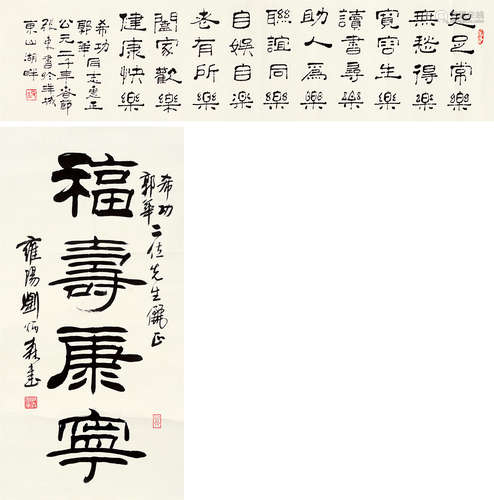 知足常樂
無愁得樂
寬容生樂
讀書尋樂
助人爲樂
聯誼同樂
自娛自樂
老有所樂
闔家歡樂
健康快樂
希功
郭華同志惠正
公元二千年春節
書於羊城
東山湖畔
希功
郭華二位先生儷正
福壽康寧
雍陽劉炳森書